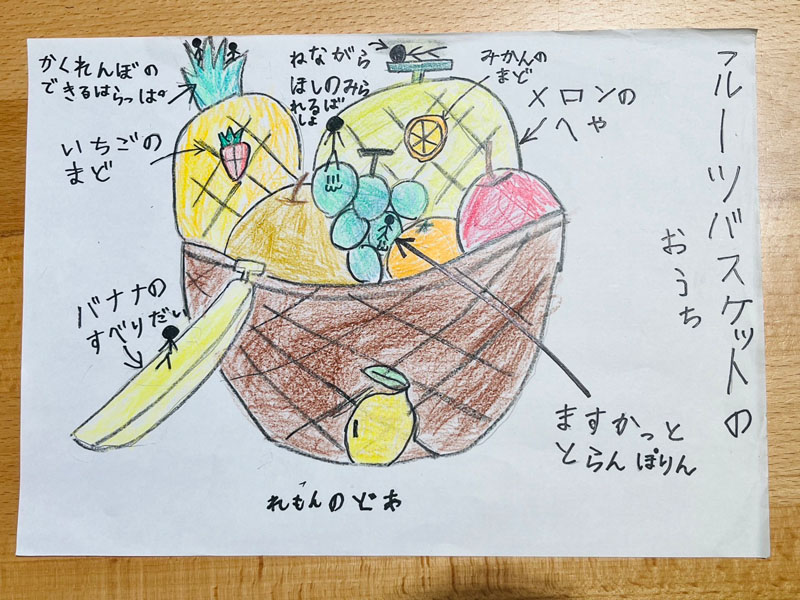 フルーツバスケットの
おうち
かくれんぼの
できるはらっぱ
いちごの
まど
ねながら
ほしのみら
れるば
しょ
みかんの
まど
メロンの
へや
バナナの
すべりだい
ますかっと
とらんぽりん
れもんのどあ